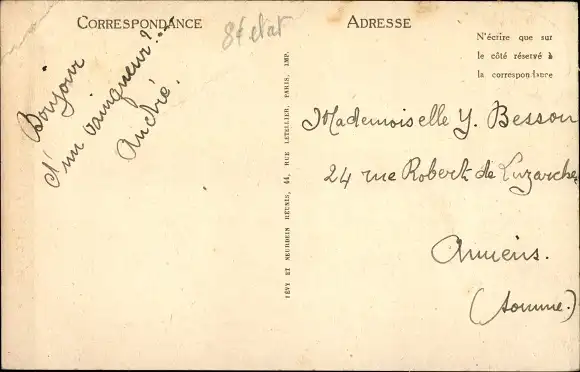 CORRESPONDANCE
8€ etat
ADRESSE
N'écrire que sur
le côté réservé à
la correspondance
Bonjour
d'un vainqueur?...
André.
LÉVY ET NEURDEIN RÉUNIS, 44, RUE LETELLIER, PARIS, IMP.
Mademoiselle Y. Besson
24 rue Robert de Luzarches
Amiens.
(Somme.)